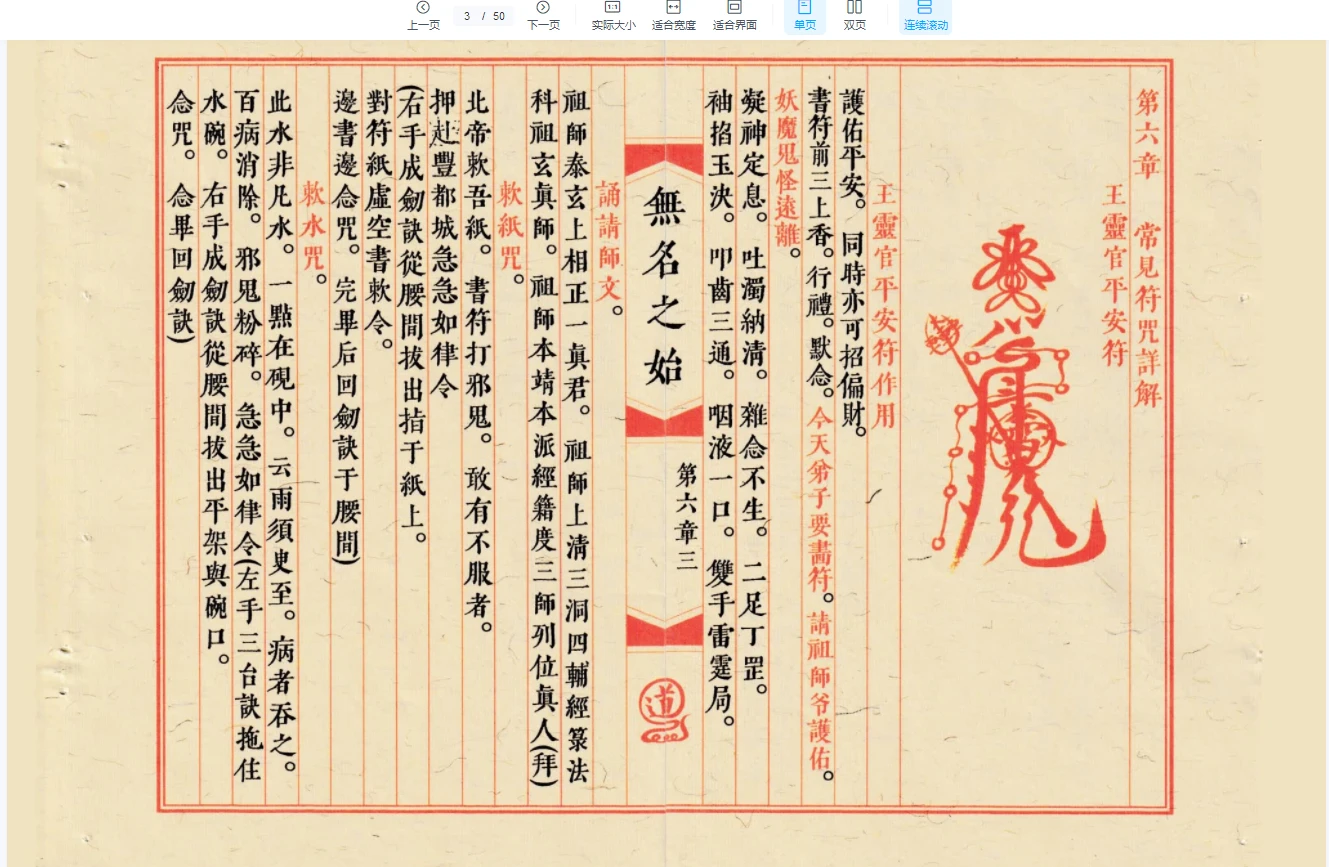 上一页
3 / 50
下一页
1:1
实际大小
适合宽度
适合界面
单页
双页
连续滚动
第六章 常見符咒詳解
王靈官平安符
王靈官平安符作用
護佑平安。同時亦可招偏財。
書符前三上香。行禮。默念。今天弟子要畵符。請祖師爷護佑。
妖魔鬼怪遠離。
凝神定息。吐濁納清。雜念不生。二足丁罡。
袖掐玉決。叩齒三通。咽液一口。雙手雷霆局。
無名之始
第六章三
道
誦請師文。
祖師泰玄上相正一眞君。祖師上清三洞四輔經箓法
科祖玄眞師。祖師本靖本派經籍度三師列位眞人(拜)
敕紙咒。
北帝敕吾紙。書符打邪鬼。敢有不服者。
押赴豐都城急急如律令
(右手成劍訣從腰間拔出指于紙上。
對符紙虛空書敕令。
邊書邊念咒。完畢后回劍訣于腰間)
敕水咒。
此水非凡水。一點在硯中。云雨須臾至。病者吞之。
百病消除。邪鬼粉碎。急急如律令(左手三台訣拖住
水碗。右手成劍訣從腰間拔出平架與碗口。
念咒。念畢回劍訣)